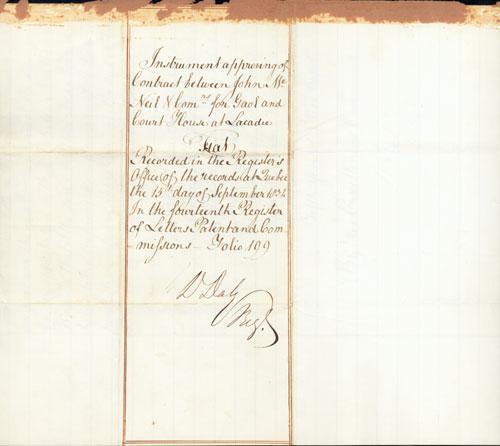 Instrument approving of
Contract between John Mc
Neil & Comrs for Gaol and
Court House at Lacadie
Fiat
Recorded in the Registers
Office of the records at Quebec
the 15th day of September 1834
In the fourteenth Register
of Letters Patent and Com
-missions - Folio 199
D Daly
Regr.